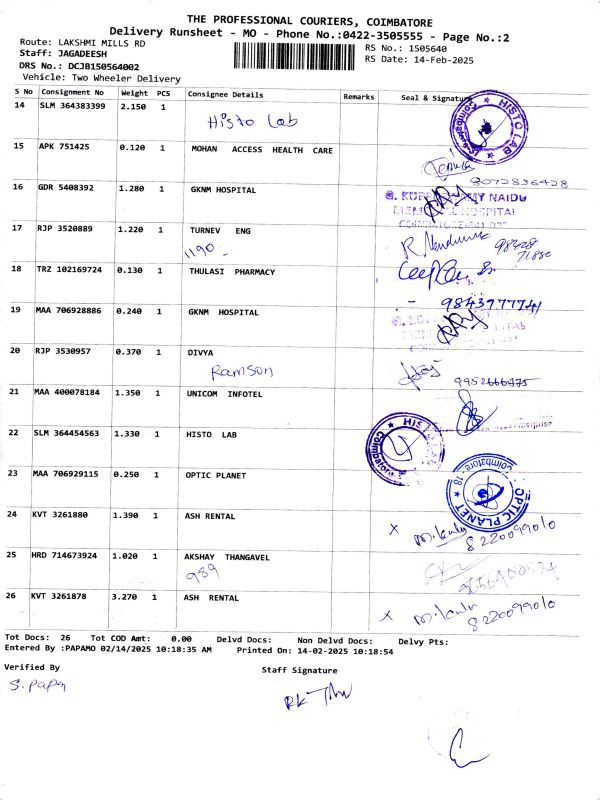 THE PROFESSIONAL COURIERS, COIMBATORE
Delivery Runsheet - MO - Phone No.:0422-3505555 - Page No.:2
Route: LAKSHMI MILLS RD
Staff: JAGADEESH
DRS No.: DCJB150564002
Vehicle: Two Wheeler Delivery
RS No.: 1505640
RS Date: 14-Feb-2025
S No Consignment No Weight PCS Consignee Details Remarks Seal & Signature
14 SLM 364383399 2.150 1
Histo Lab
HISTO LAB
Coimbatore
15 APK 751425 0.120 1 MOHAN ACCESS HEALTH CARE
8072836428
16 GDR 5408392 1.280 1 GKNM HOSPITAL
G. KUPPUSWAMY NAIDU
MEMORIAL HOSPITAL
17 RJP 3520889 1.220 1 TURNEV ENG
1190
98428
71880
18 TRZ 102169724 0.130 1 THULASI PHARMACY
9843977741
19 MAA 706928886 0.240 1 GKNM HOSPITAL
20 RJP 3530957 0.370 1 DIVYA
Ramson
9952666475
21 MAA 400078184 1.350 1 UNICOM INFOTEL
22 SLM 364454563 1.330 1 HISTO LAB
HISTO LAB
Coimbatore
23 MAA 706929115 0.250 1 OPTIC PLANET
OPTIC PLANET
Coimbatore - 18
24 KVT 3261880 1.390 1 ASH RENTAL
x 8220099010
25 HRD 714673924 1.020 1 AKSHAY THANGAVEL
989
26 KVT 3261878 3.270 1 ASH RENTAL
x 8220099010
Tot Docs: 26 Tot COD Amt: 0.00 Delvd Docs: Non Delvd Docs: Delvy Pts:
Entered By :PAPAMO 02/14/2025 10:18:35 AM Printed On: 14-02-2025 10:18:54
Verified By
Staff Signature
S. Papa